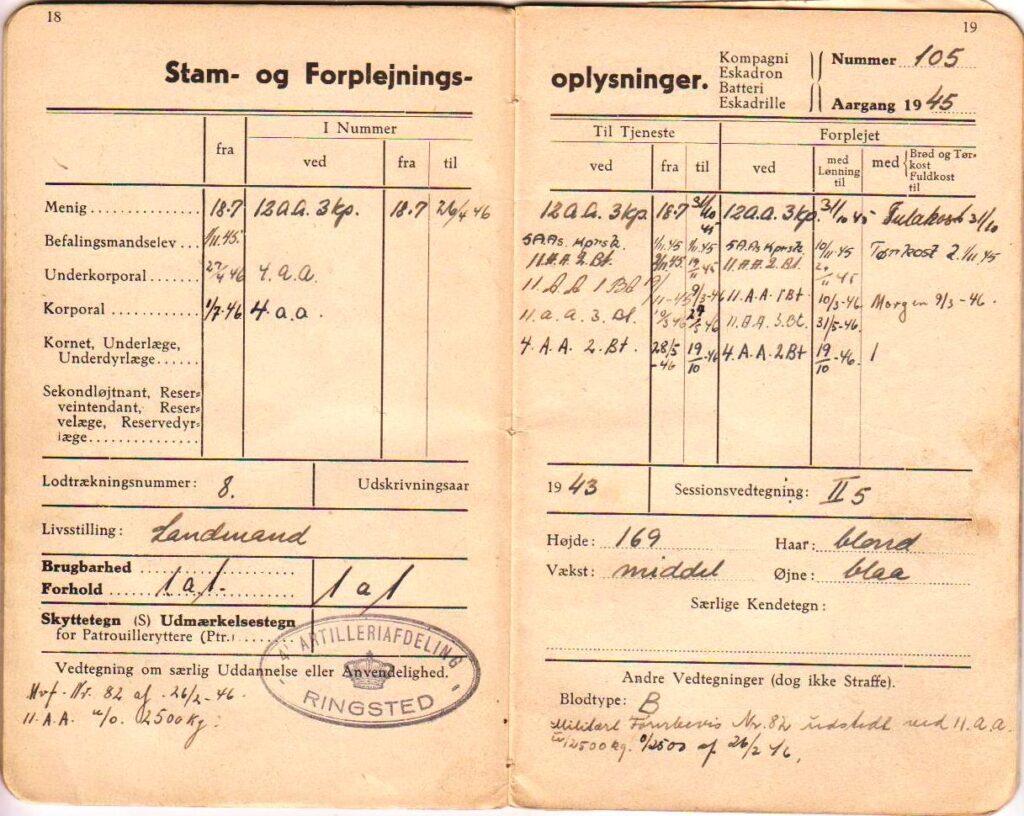 18
Stam- og Forplejnings-
I Nummer
fra ved fra til
Menig 18-7 12 a.a. 3 kp. 18-7 26/4 46
Befalingsmandselev 1/11.45.
Underkorporal 27/4 46 4. a.a.
Korporal 1/7-46 4. a.a.
Kornet, Underlæge,
Underdyrlæge
Sekondløjtnant, Reser-
veintendant, Reser-
velæge, Reservedyr-
læge
Lodtrækningsnummer: 8. Udskrivningsaar
Livsstilling: Landmand
Brugbarhed
Forhold 1 a 1 1 a 1
Skyttetegn (S) Udmærkelsestegn
for Patrouilleryttere (Ptr.)
4' ARTILLERIAFDELING
RINGSTED
Vedtegning om særlig Uddannelse eller Anvendelighed.
Nr. 82 af 26/2-46.
11. A.A. 2500 kg.
19
oplysninger.
Kompagni
Eskadron
Batteri
Eskadrille
Nummer 105
Aargang 1945
Til Tjeneste Forplejet
ved fra til ved med Lønning til med Brød og Tør-
kost
Fuldkost
til
12 a.a. 3 kp. 18-7 31/10 45 12 a.a. 3 kp. 31/10 45 31/10
5 A.As. Kprsk. 1/11.45 1/11.45 5 A.As Kprsk. 10/11-45 Tørkost 2.1/11.45
11. A.A. 2. Bt. 19/11 45 11. A.A. 2. Bt.
11 A A 1 Bt 9/3-46 11. A.A. 1 Bt 10/3-46 Morgen 9/3-46.
11. a.a. 3. Bt. 11. A.A. 3. Bt. 31/5-46.
4. A.A. 2. Bt. 28/5-46 19/10-46 4. A.A. 2 Bt 19/10-46.
1943 Sessionsvedtegning: II 5
Højde: 169 Haar: blond
Vækst: middel Øjne: blaa
Særlige Kendetegn:
Andre Vedtegninger (dog ikke Straffe).
Blodtype: B
Militært Førerbevis Nr. 82 udstedt ved 11. a.a.
2500 kg. af 26/2 46.